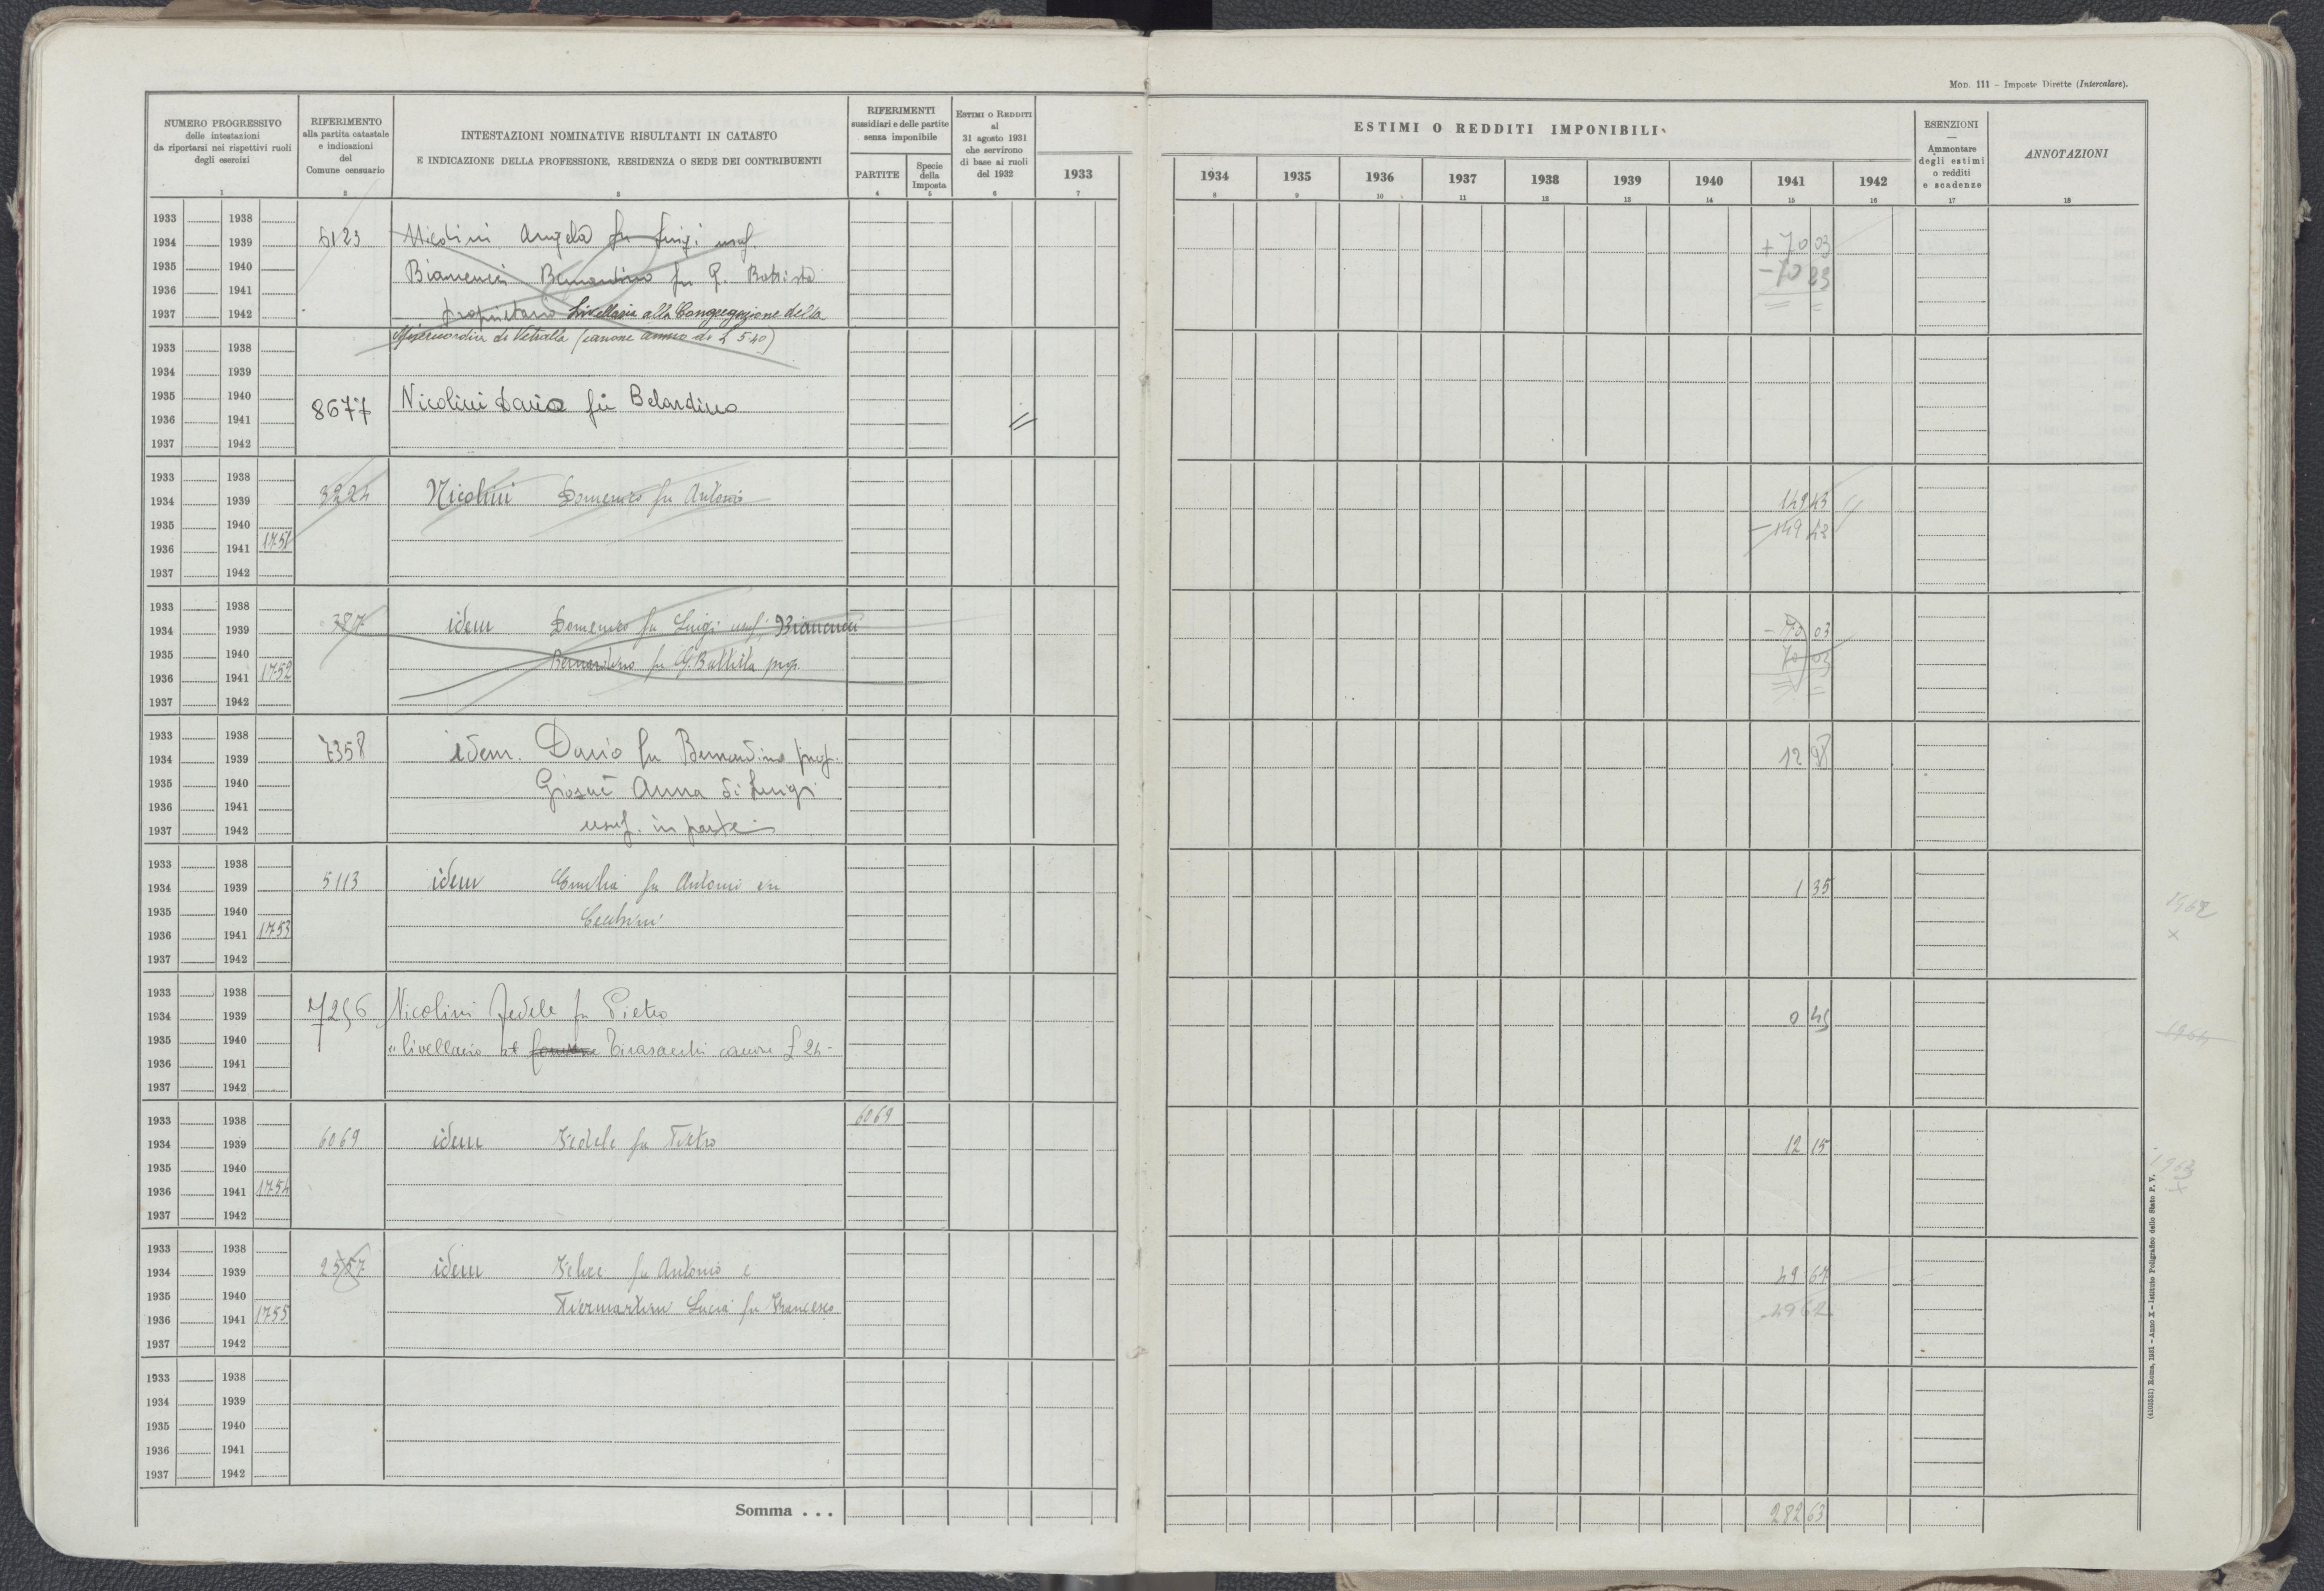 Mod. 111 – Imposte Dirette (Intercalare).
NUMERO PROGRESSIVO
delle intestazioni
da riportarsi nei rispettivi ruoli
degli esercizi
1
RIFERIMENTO
alla partita catastale
e indicazioni
del
Comune censuario
2
INTESTAZIONI NOMINATIVE RISULTANTI IN CATASTO
E INDICAZIONE DELLA PROFESSIONE, RESIDENZA O SEDE DEI CONTRIBUENTI
3
RIFERIMENTI
sussidiari e delle partite
senza imponibile
PARTITE
4
Specie
della
Imposta
5
ESTIMI O REDDITI
al
31 agosto 1931
che servirono
di base ai ruoli
del 1932
6
1933
7
ESTIMI O REDDITI IMPONIBILI
1934 1935 1936 1937 1938 1939 1940 1941 1942
8 9 10 11 12 13 14 15 16
ESENZIONI
—
Ammontare
degli estimi
o redditi
e scadenze
17
ANNOTAZIONI
18
1933 1938
1934 1939 6123 Nicolini Angela fu Luigi usuf. + 70 03
1935 1940 Bianenci Bernardino fu G. Battista
1936 1941
1937 1942 proprietario Livellaria alla Congregazione della
Misericordia di Vetralla (canone annuo di £ 5.40)
1933 1938
1934 1939
1935 1940 8677 Nicolini Dario fu Belardino
1936 1941
1937 1942
1933 1938
1934 1939 3224 Nicolini Domenico fu Antonio 149 43
1935 1940
1936 1941 1751
1937 1942
1933 1938
1934 1939 387 idem Domenico fu Luigi usuf; Bianenci 70 03
1935 1940 Bernardino fu G. Battista prop. 70 03
1936 1941 1752
1937 1942
1933 1938
1934 1939 7358 idem. Dario fu Bernardino prop. 12 98
1935 1940 Giosuè Anna di Luigi
1936 1941
1937 1942 usuf. in parte
1933 1938
1934 1939 5113 idem Emilia fu Antonio in 1 35
1935 1940 Cecchini
1936 1941 1753
1937 1942
1962
×
1933 1938
1934 1939 7256 Nicolini Fedele fu Pietro 0 45
1935 1940 livellario Tirasacchi canone £ 24-
1936 1941
1937 1942
1964
1933 1938 6069
1934 1939 6069 idem Fedele fu Pietro 12 15
1935 1940
1936 1941 1754
1937 1942
1963
×
1933 1938
1934 1939 2557 idem Felice fu Antonio e 49 67
1935 1940
1936 1941 1755 Piermartini Lucia fu Francesco
1937 1942
1933 1938
1934 1939
1935 1940
1936 1941
1937 1942
Somma . . . 282 63
(4103531) Roma, 1931 – Anno X – Istituto Poligrafico dello Stato P. V.